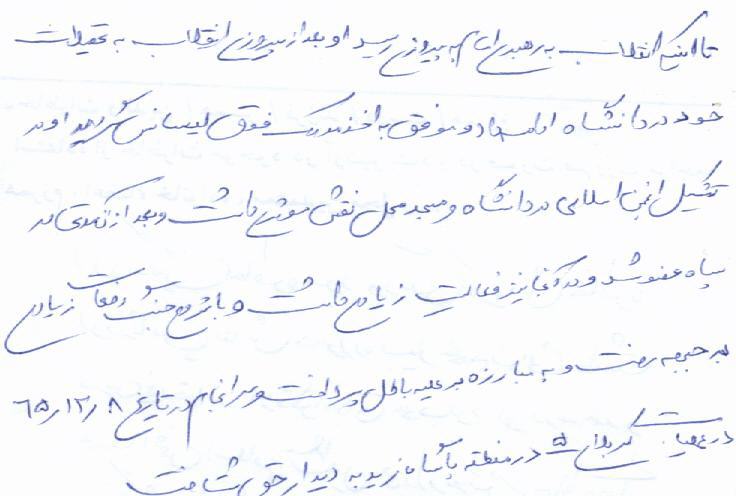 تا اینکه انقلاب به رهبری امام به پیروزی رسید او بعد از پیروزی انقلاب به تحصیلات
خود در دانشگاه ادامه داد و موفق به اخذ مدرک فوق لیسانس گردید او در
تشکیل انجمن اسلامی در دانشگاه و مسجد محل نقش موثری داشت و بعد از مدتی در
سپاه عضو شد و در آنجا نیز فعالیت زیادی داشت و با شروع جنگ دفعات زیادی
به جبهه رفت و به مبارزه بر علیه باطل پرداخت و سرانجام در تاریخ ۶۵/۱۲/۸
در عملیات کربلای ۵ در منطقه پاسگاه زید به دیدار حق شتافت